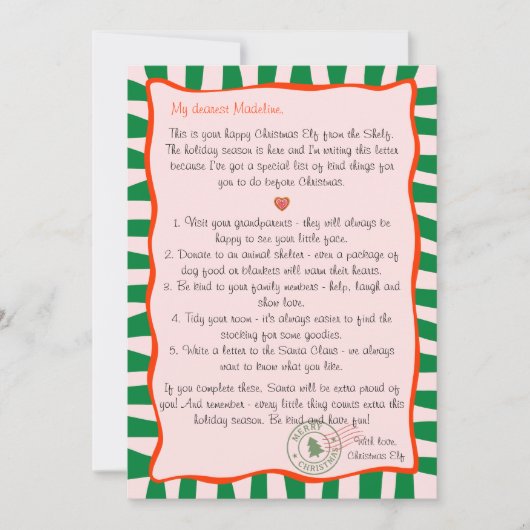 My dearest Madeline,,
This is your happy Christmas Elf from the Shelf.
The holiday season is here and I'm writing this letter
because I've got a special list of kind things for
you to do before Christmas.
1. Visit your grandparents - they will always be
happy to see your little face.
2. Donate to an animal shelter - even a package of
dog food or blankets will warm their hearts.
3. Be kind to your family members - help, laugh and
show love.
4. Tidy your room - it's always easier to find the
stocking for some goodies.
5. Write a letter to the Santa Claus - we always
want to know what you like.
If you complete these, Santa will be extra proud of
you! And remember - every little thing counts extra this
holiday season. Be kind and have fun!
MERRY
CHRISTMAS
With love,
Christmas Elf